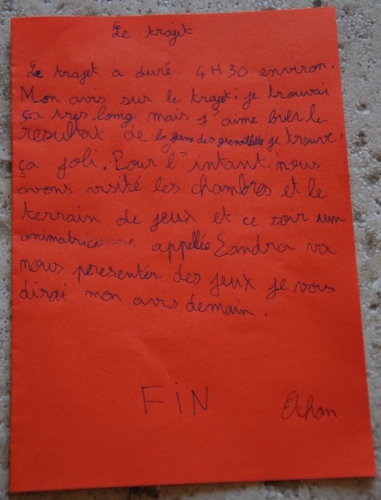 Le trajet
Le trajet a duré 4H30 environ.
Mon avis sur le trajet: je trouvai
ça tres long mais j'aime bien le
resultat de la ferme des grenouilles je trouve
ça joli. Pour l'intant nous
avons visité les chambres et le
terrain de jeux et ce soir une
animatrice appellée Sandra va
nous présenter des jeux je vous
dirai mon avis demain.
FIN
Ethan